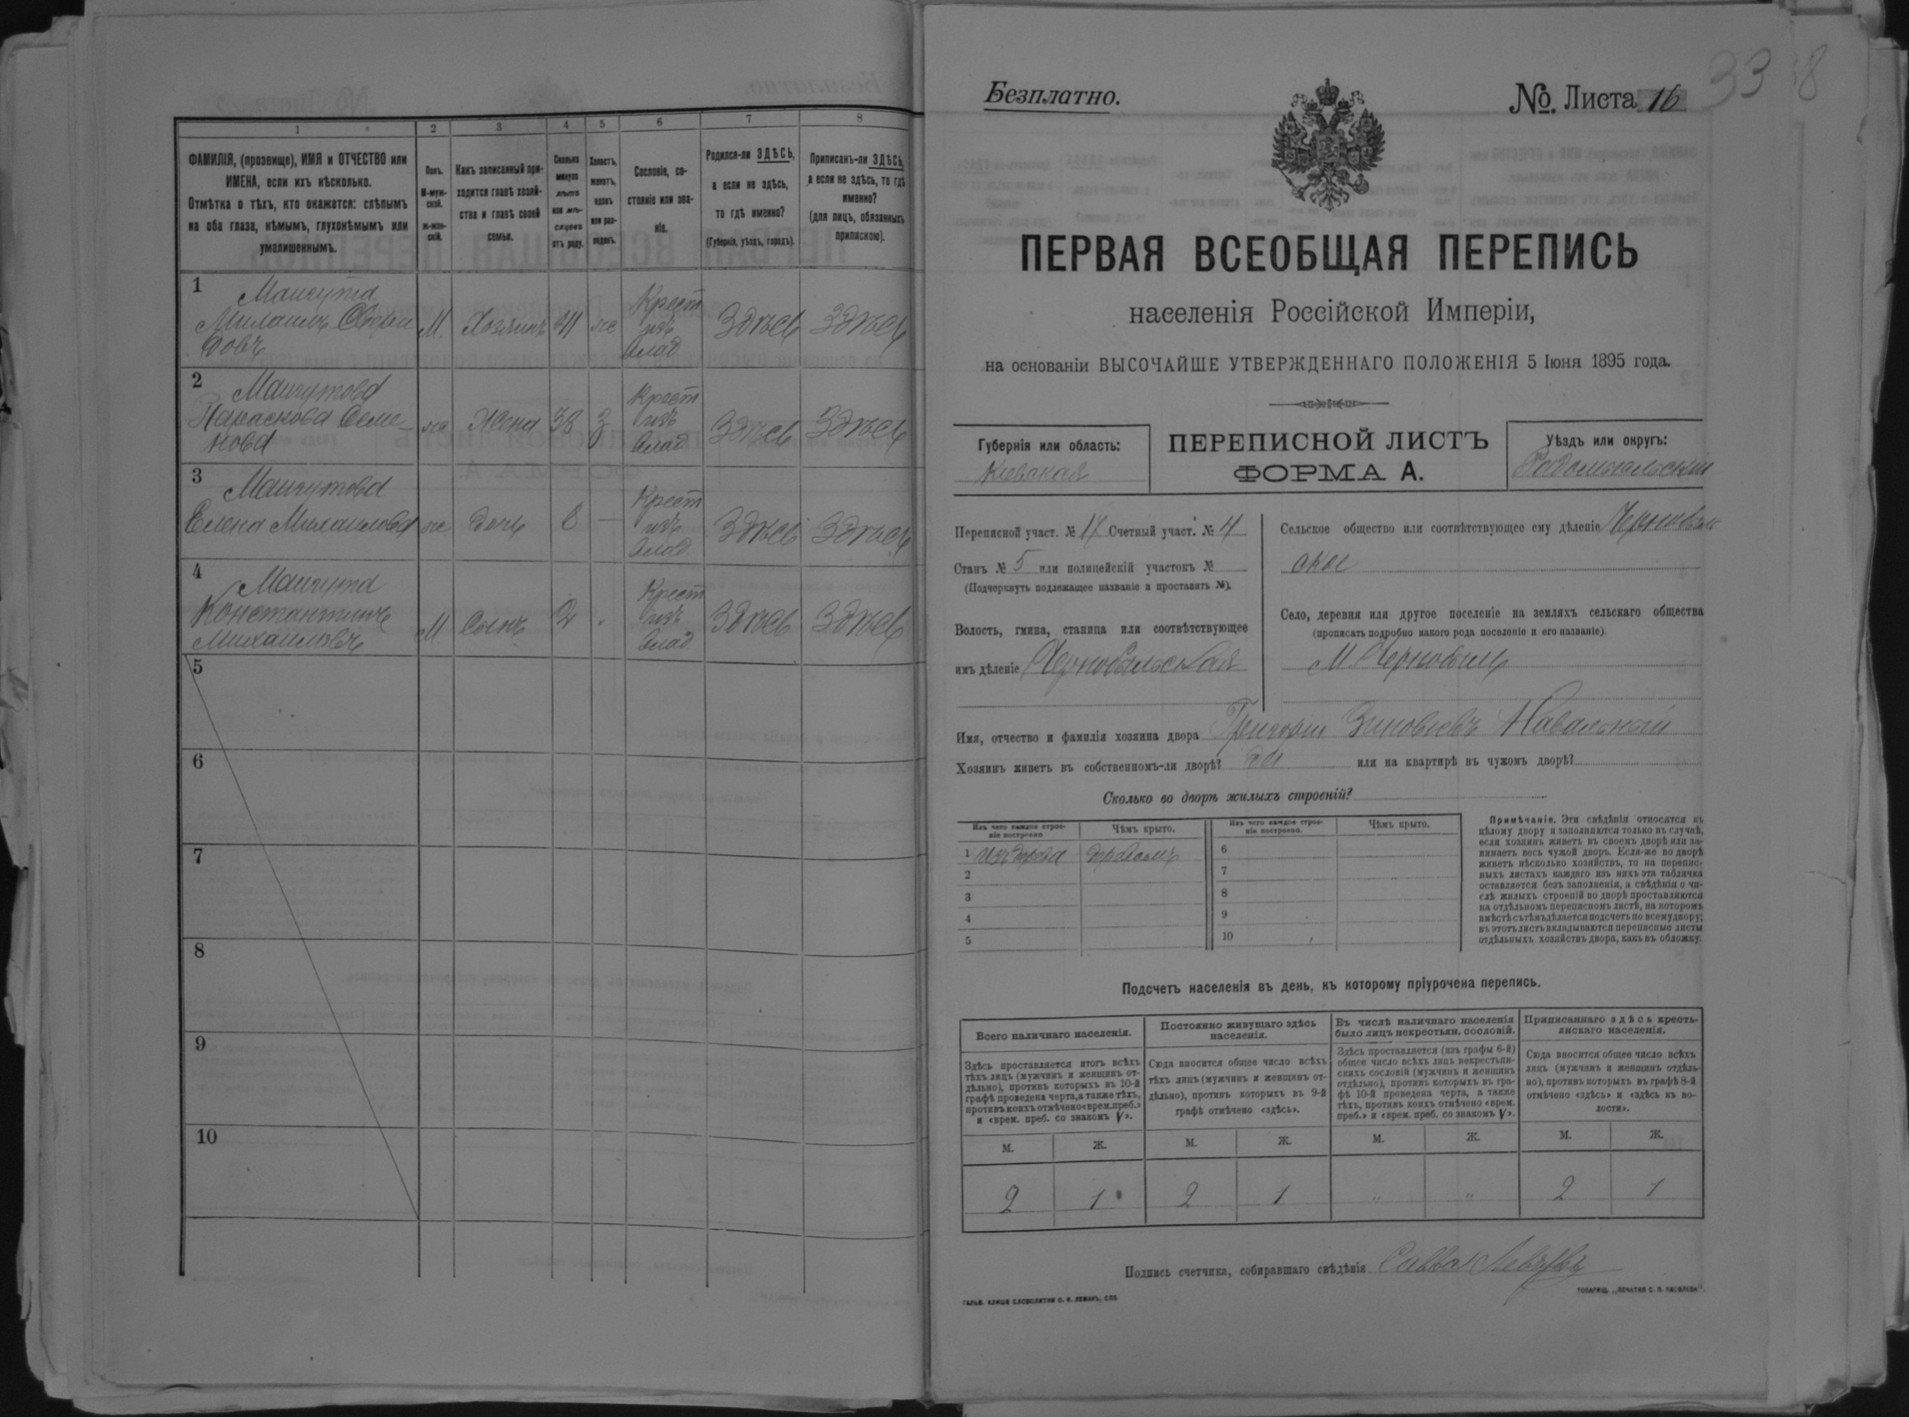 1 2 3 4 5 6 7 8
ФАМИЛІЯ, (прозвище), ИМЯ и ОТЧЕСТВО или
ИМЕНА, если ихъ нѣсколько.
Отмѣтка о тѣхъ, кто окажется: слѣпымъ
на оба глаза, нѣмымъ, глухонѣмымъ или
умалишеннымъ.
Полъ.
М-муж-
ской.
Ж-жен-
скій.
Какъ записанный при-
ходится главѣ хозяй-
ства и главѣ своей
семьи.
Сколько
минуло
лѣтъ
или мѣ-
сяцевъ
отъ роду.
Холостъ,
женатъ,
вдовъ
или раз-
веденъ.
Сословіе, со-
стояніе или зва-
ніе.
Родился-ли ЗДѢСЬ,
а если не здѣсь,
то гдѣ именно?
(Губернія, уѣздъ, городъ).
Приписанъ-ли ЗДѢСЬ,
а если не здѣсь, то гдѣ
именно?
(для лицъ, обязанныхъ
припискою).
1
М. Хозяинъ Крест Здѣсь Здѣсь
2
Параскова Семе-
нова
Жена 38 з Крест Здѣсь Здѣсь
3
Елена Михаилова дочь Крест Здѣсь Здѣсь
4
Константинъ
Михаиловъ
М Сынъ Крест Здѣсь Здѣсь
5
6
7
8
9
10
Безплатно.
№ Листа 16
33
ПЕРВАЯ ВСЕОБЩАЯ ПЕРЕПИСЬ
населенія Россійской Имперіи,
на основаніи ВЫСОЧАЙШЕ УТВЕРЖДЕННАГО ПОЛОЖЕНІЯ 5 Іюня 1895 года.
Губернія или область:
Кіевская
ПЕРЕПИСНОЙ ЛИСТЪ
ФОРМА А.
Уѣздъ или округъ:
Радомысльскій
Переписной участ. № IX Счетный участ. № 4
Станъ № 5 или полицейскій участокъ №
(Подчеркнуть подлежащее названіе и проставить №).
Волость, гмина, станица или соотвѣтствующее
имъ дѣленіе Чернобыльская
Сельское общество или соотвѣтствующее ему дѣленіе Чернобыль
ское
Село, деревня или другое поселеніе на земляхъ сельскаго общества
(прописать подробно какого рода поселеніе и его названіе)
М. Чернобыль
Имя, отчество и фамилія хозяина двора Григорій Зиновіевъ Навальный
Хозяинъ живетъ въ собственномъ-ли дворѣ? да или на квартирѣ въ чужомъ дворѣ?
Сколько во дворѣ жилыхъ строеній?
Изъ чего каждое строе-
ніе построено.
Чѣмъ крыто.
Изъ чего каждое строе-
ніе построено.
Чѣмъ крыто.
1 изъ дерева 6
2 7
3 8
4 9
5 10
Примѣчаніе. Эти свѣдѣнія относятся къ
цѣлому двору и заполняются только въ случаѣ,
если хозяинъ живетъ въ своемъ дворѣ или за-
нимаетъ весь чужой дворъ. Если-же во дворѣ
живетъ нѣсколько хозяйствъ, то на перепис-
ныхъ листахъ каждаго изъ нихъ эта табличка
оставляется безъ заполненія, а свѣдѣнія о чи-
слѣ жилыхъ строеній во дворѣ проставляются
на отдѣльномъ переписномъ листѣ, на которомъ
вмѣстѣ съ тѣмъ дѣлается подсчетъ по всему двору;
въ этотъ листъ вкладываются переписные листы
отдѣльныхъ хозяйствъ двора, какъ въ обложку.
Подсчетъ населенія въ день, къ которому пріурочена перепись.
Всего наличнаго населенія.
Здѣсь проставляется итогъ всѣхъ
тѣхъ лицъ (мужчинъ и женщинъ от-
дѣльно), противъ которыхъ въ 10-й
графѣ проведена черта, а также тѣхъ,
противъ коихъ отмѣчено «врем. преб.»
и «врем. преб. со знакомъ V».
Постоянно живущаго здѣсь
населенія.
Сюда вносится общее число всѣхъ
тѣхъ лицъ (мужчинъ и женщинъ от-
дѣльно), противъ которыхъ въ 9-й
графѣ отмѣчено «здѣсь».
Въ числѣ наличнаго населенія
было лицъ некрестьян. сословій.
Здѣсь проставляется (изъ графы 6-й)
общее число всѣхъ лицъ некрестьян-
скихъ сословій (мужчинъ и женщинъ
отдѣльно), противъ которыхъ въ гра-
фѣ 10-й проведена черта, а также
тѣхъ, противъ коихъ отмѣчено «врем.
преб.» и «врем. преб. со знакомъ V».
Приписаннаго здѣсь кресть-
янскаго населенія.
Сюда вносится общее число всѣхъ
лицъ (мужчинъ и женщинъ отдѣль-
но), противъ которыхъ въ графѣ 8-й
отмѣчено «здѣсь» и «здѣсь въ во-
лости».
М. Ж. М. Ж. М. Ж. М. Ж.
2 1 2 1 " " 2 1
Подпись счетчика, собиравшаго свѣдѣнія Савва
ГАЛЬВ. КЛИШЕ СЛОВОЛИТНИ О. И. ЛЕМАНЪ, СПБ.
ТОВАРИЩ. „ПЕЧАТНЯ С. П. ЯКОВЛЕВА".